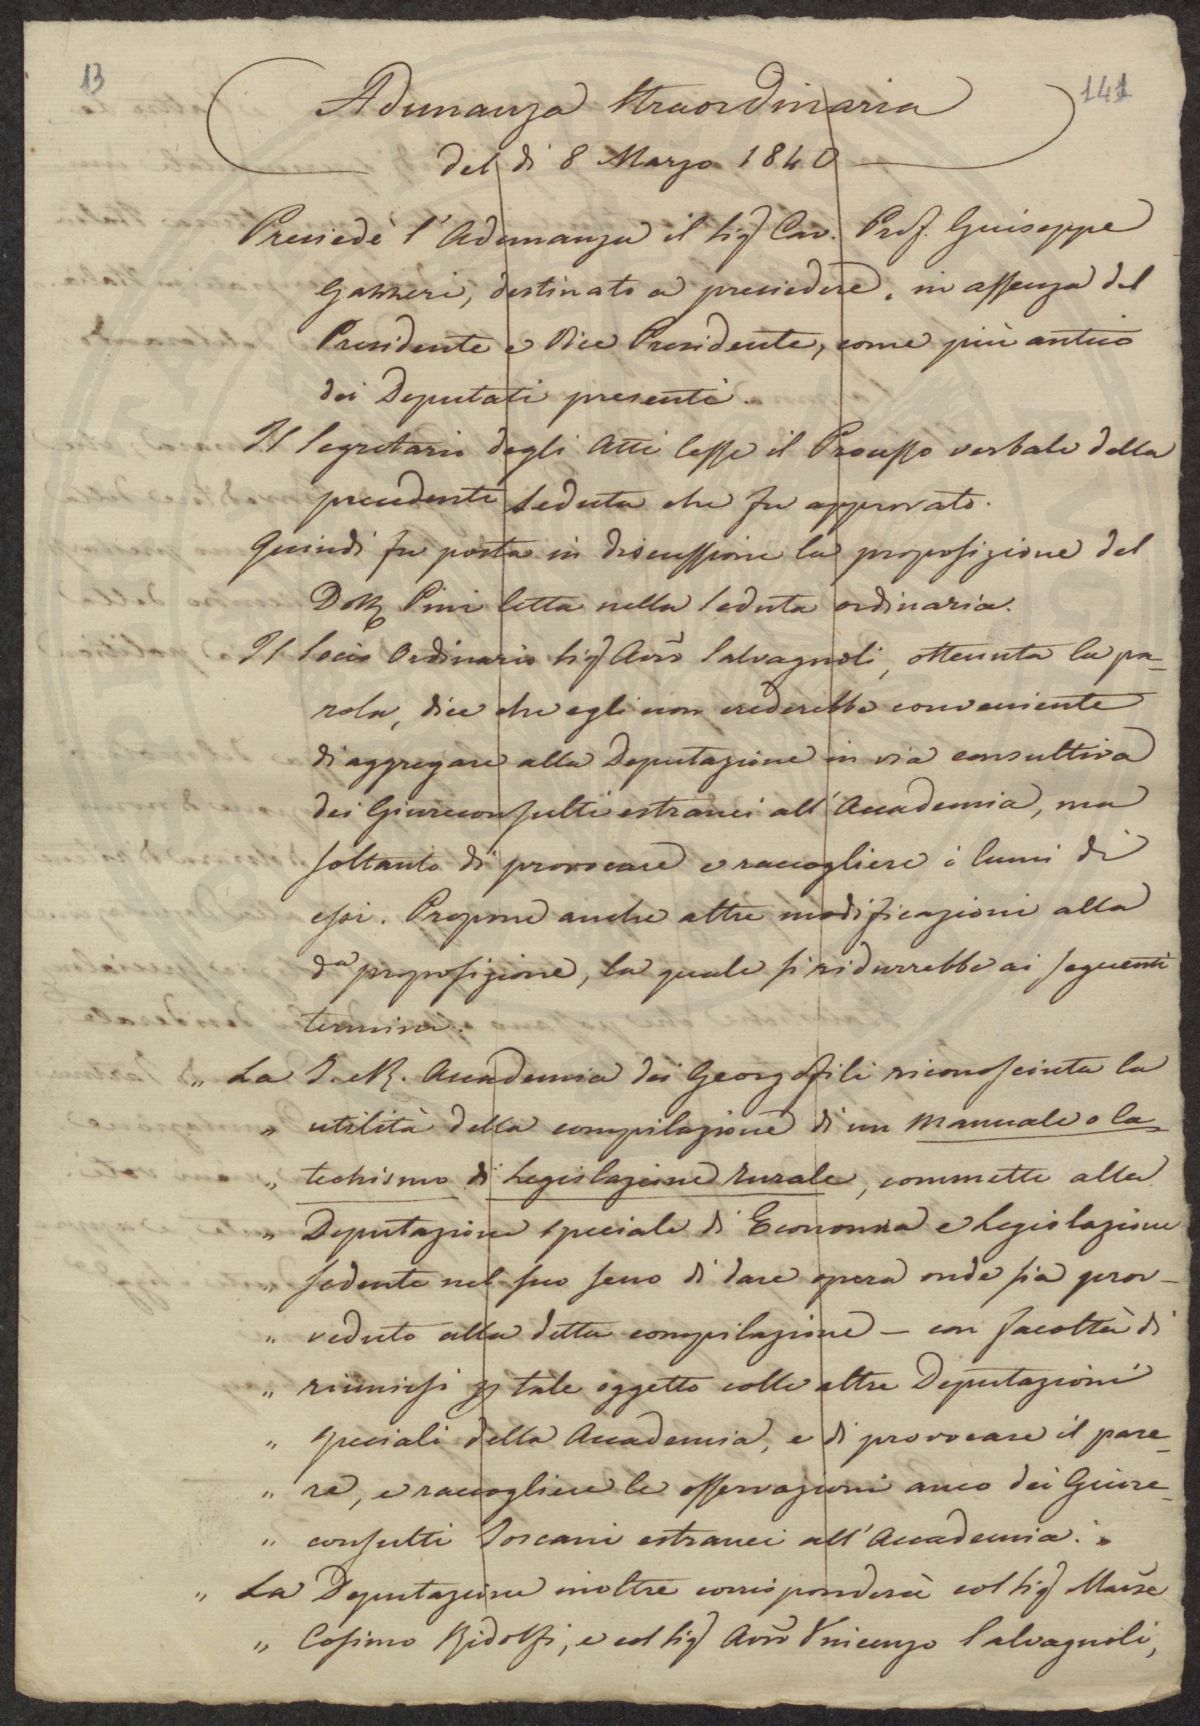 13
141
Adunanza Straordinaria
del dì 8 Marzo 1840
Presiedè l'Adunanza il Sig.r Cav. Prof. Giuseppe
Gazzeri, destinato a presiedere, in assenza del
Presidente e Vice Presidente, come più antico
dei Deputati presenti.
Il Segretario degli Atti lesse il Processo verbale della
precedente Seduta che fu approvato.
Quindi fu posta in discussione la proposizione del
Dott. Pini letta nella Seduta ordinaria.
Il Socio Ordinario Sig.r Avv.o Salvagnoli, ottenuta la pa-
rola, dice che egli non crederebbe conveniente
di aggregare alla Deputazione in via consultiva
dei Giureconsulti estranei all'Accademia, ma
soltanto di provocare e raccogliere i lumi di
essi. Propone anche altre modificazioni alla
d.a proposizione, la quale si ridurrebbe ai seguenti
termini.
„ La I. e R. Accademia dei Georgofili riconosciuta la
„ utilità della compilazione di un Manuale o Ca-
„ techismo di Legislazione Rurale, commette alla
„ Deputazione speciale di Economia e Legislazione
„ sedente nel suo seno di dare opera onde sia prov-
„ veduto alla detta compilazione – con facoltà di
„ riunirsi p tale oggetto colle altre Deputazioni
„ speciali della Accademia, e di provocare il pare-
„ re, e raccogliere le osservazioni anco dei Giure-
„ consulti Toscani estranei all'Accademia. „
„ La Deputazione inoltre corrisponderà col Sig.r March.e
„ Cosimo Ridolfi, e col Sig.r Avv.o Vincenzo Salvagnoli,